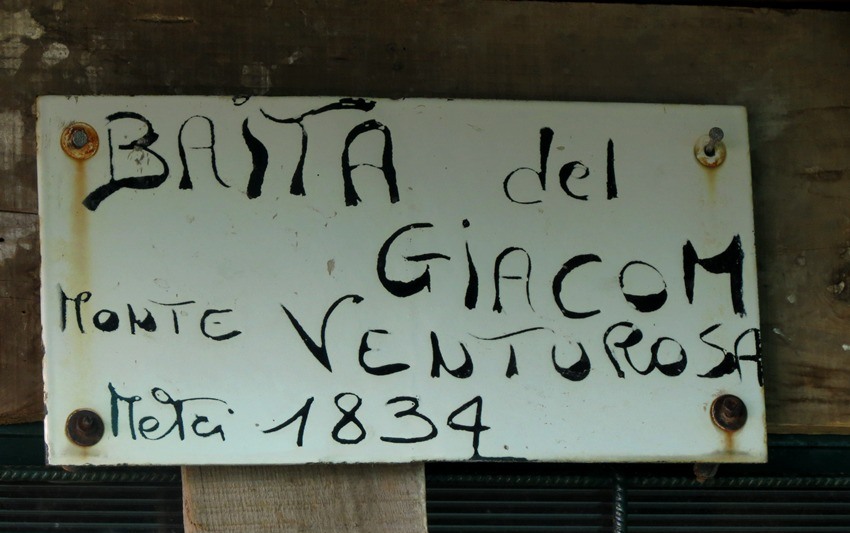 BAiTA del
GiACOM
MONTE VENTUROSA
Metri 1834